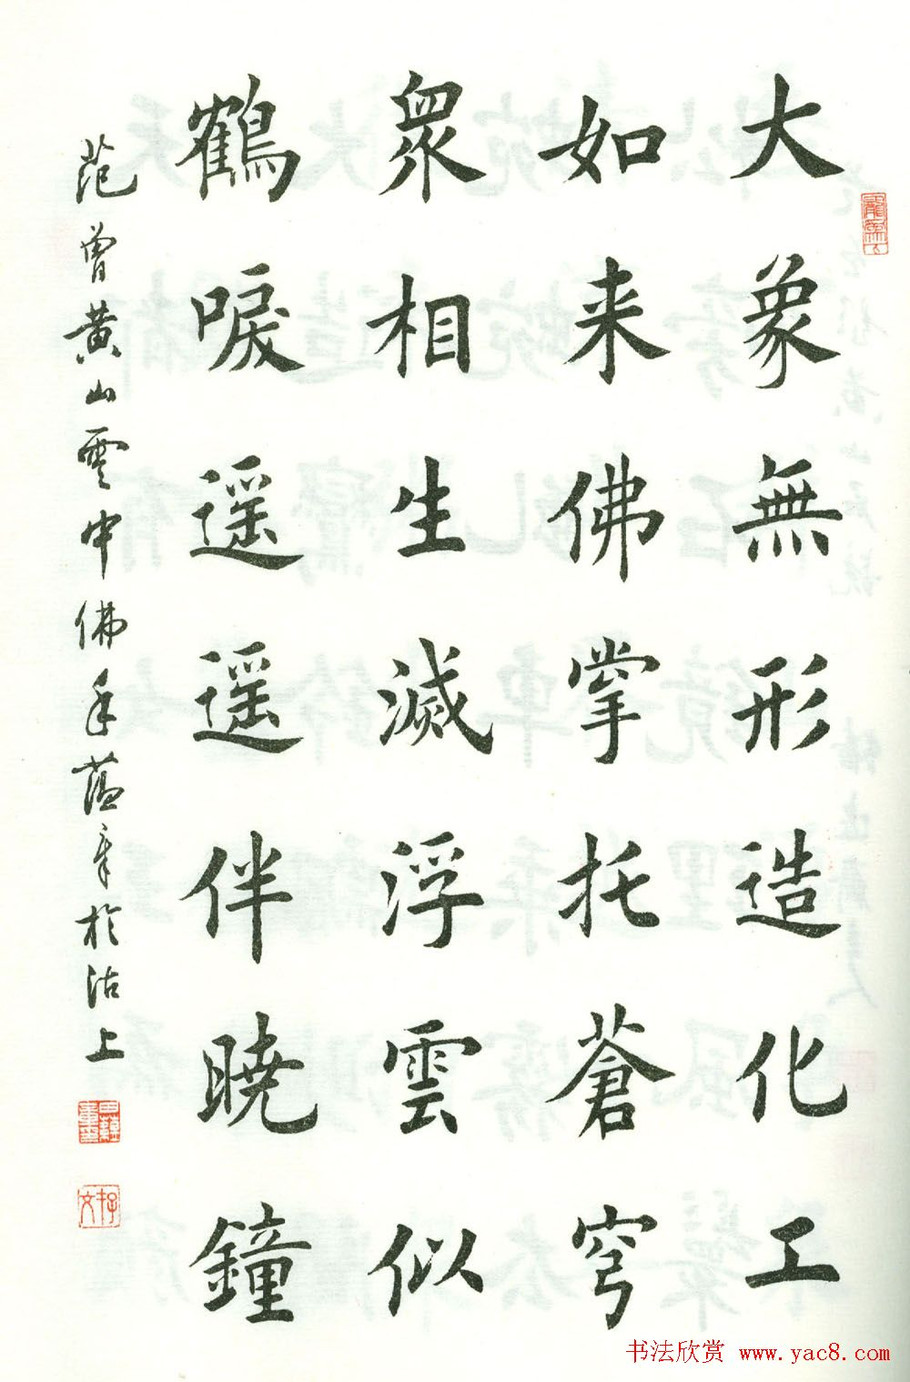 大象無形造化工
如来佛掌托蒼穹
衆相生滅浮雲似
鶴唳遥遥伴暁鐘
范曾黄山雲中佛手蘊章於沽上
书法欣赏 www.yac8.com